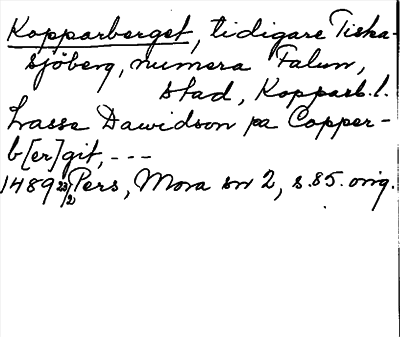 Kopparberget, tidigare Tiska-
sjöberg, numera Falun,
stad, Kopparb.l.
Lasse Dawidson pa Copper-
b[er]git, ---
1489 23/2 Pers, Mora sn 2, s.85. orig.